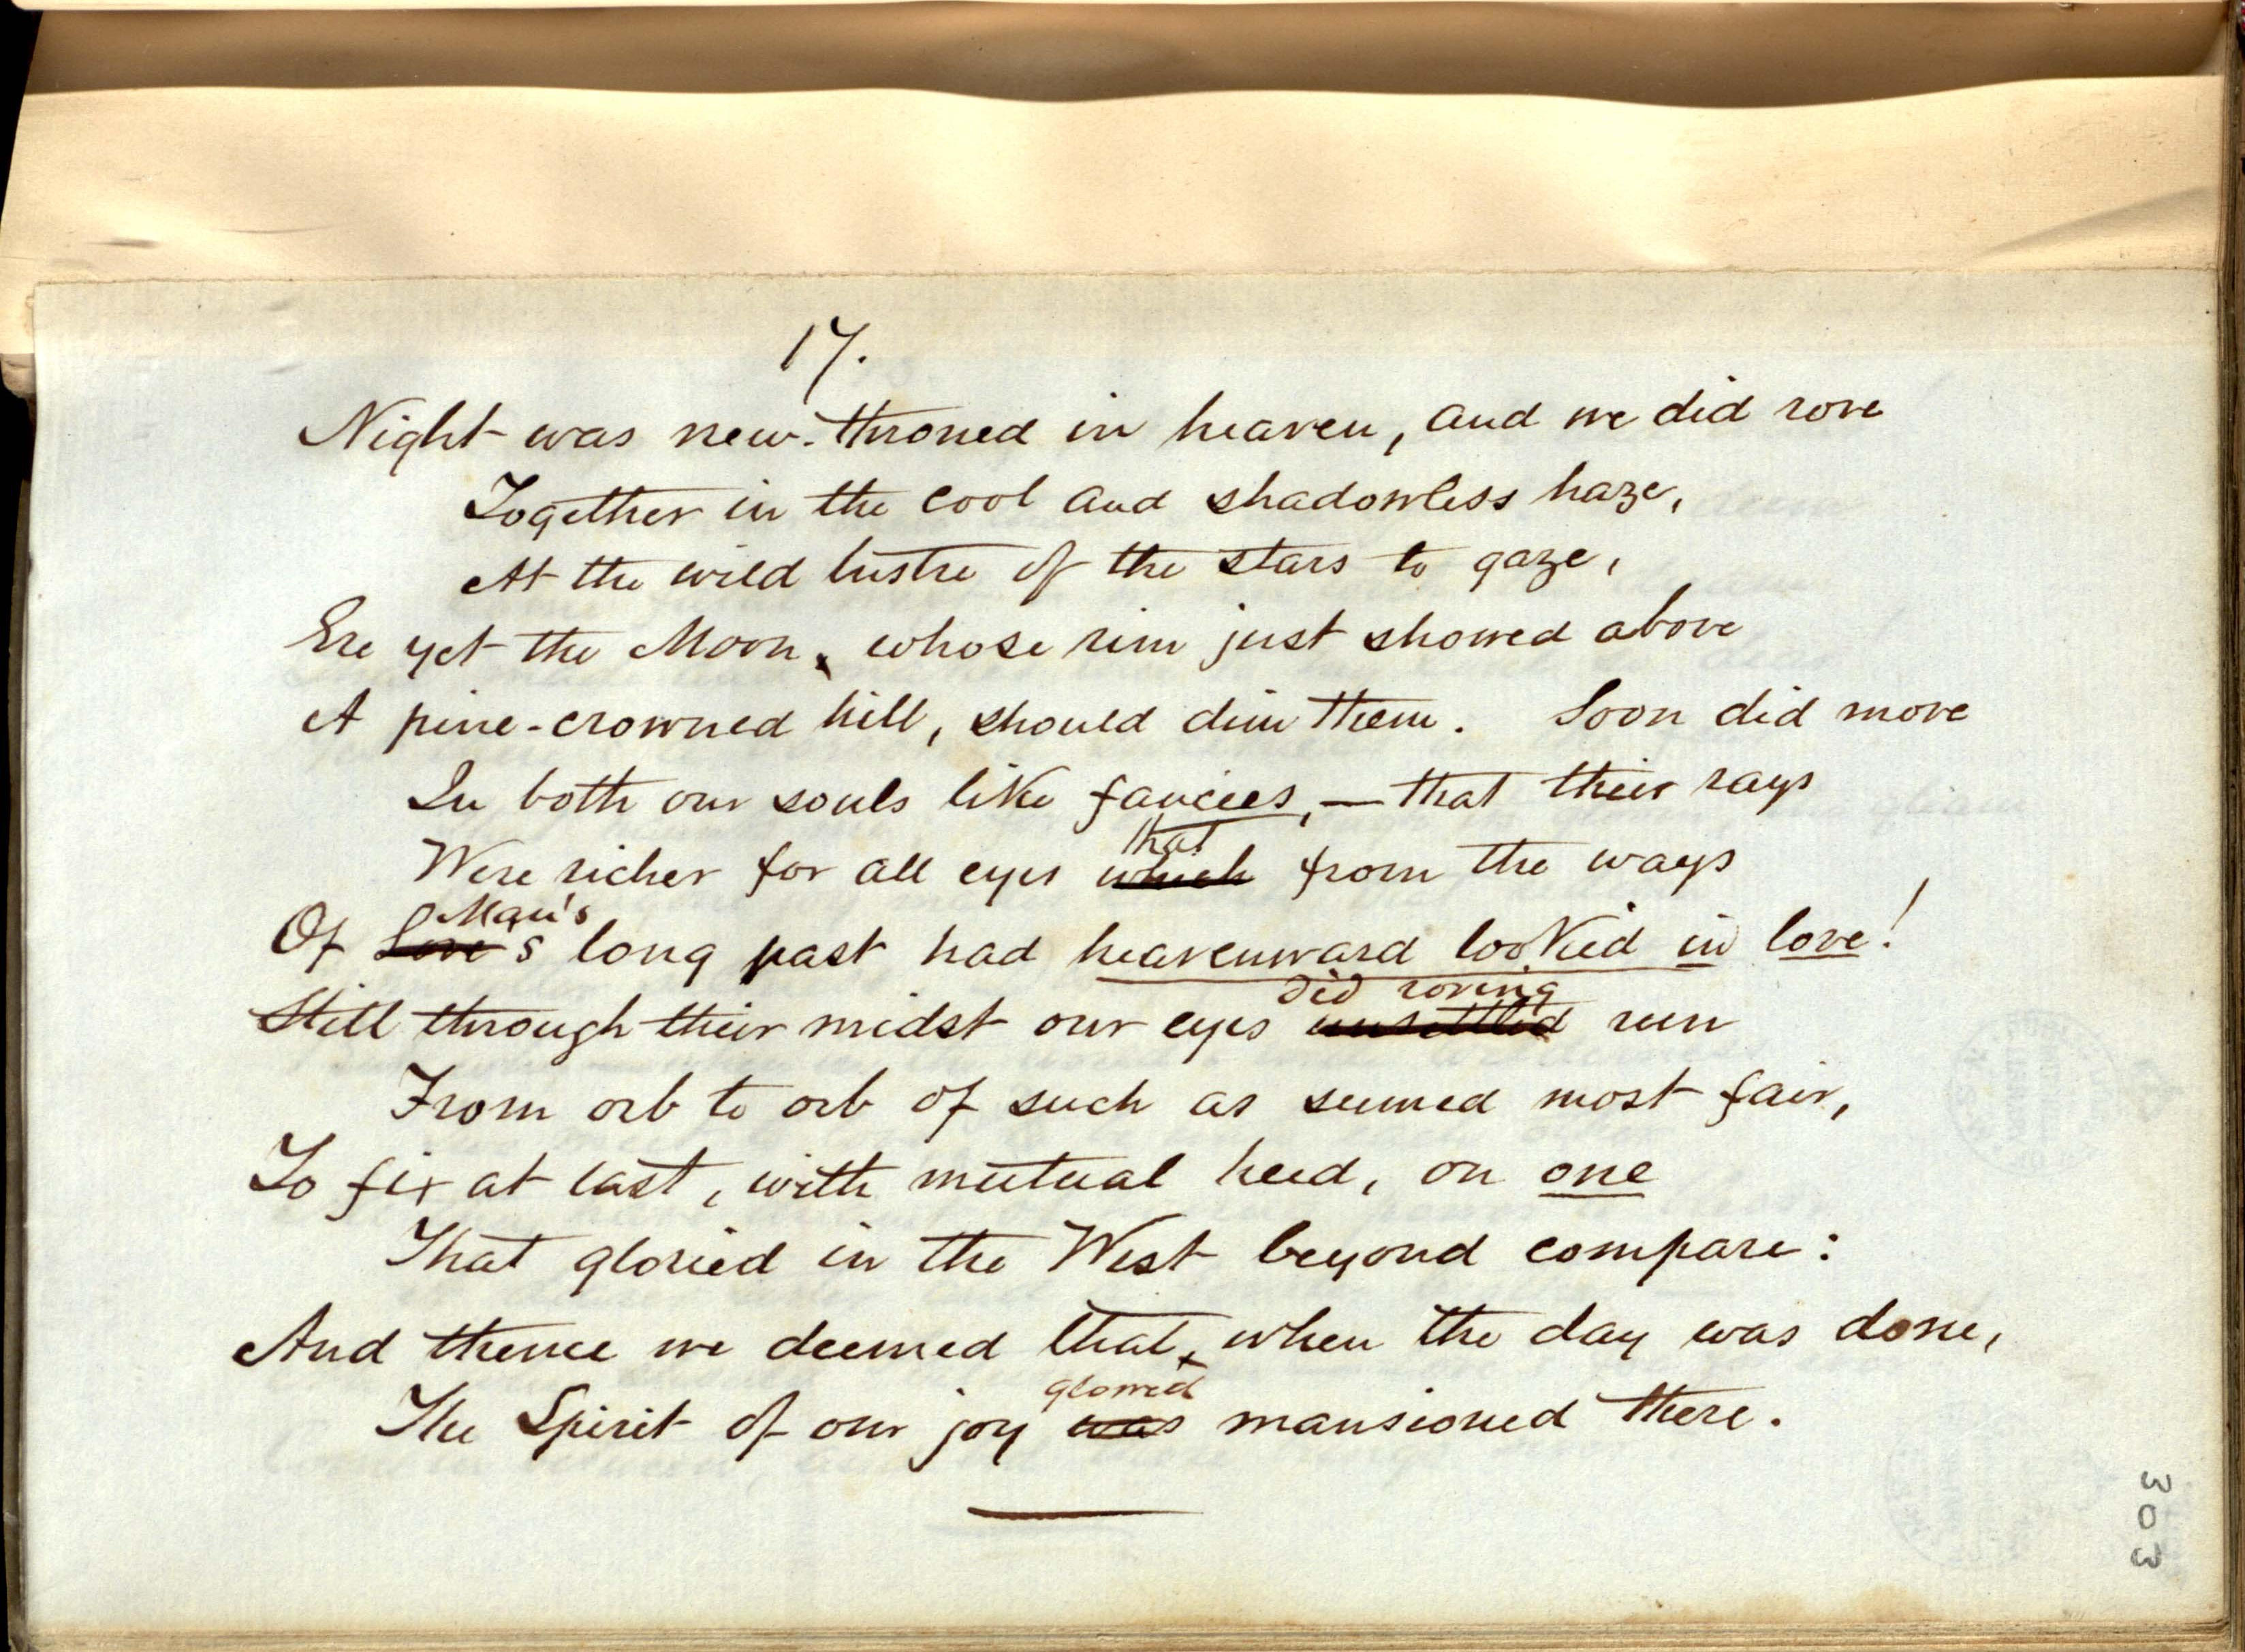 17.
Night was new-throned in heaven, and we did rove
Together in the cool and shadowless haze,
At the wild lustre of the stars to gaze,
Ere yet the Moon, whose rim just showed above
A pine-crowned hill, should dim them. Soon did move
In both our souls like fancies,—that their rays
that
Were richer for all eyes which from the ways
Man's
Of Love's long past had heavenward looked in love!
did roving
Still through their midst our eyes unsettled run
From orb to orb of such as seemed most fair,
To fix at last, with mutual heed, on one
That gloried in the West beyond compare:
And thence we deemed that, when the day was done,
glowed
The Spirit of our joy was mansioned there.
303